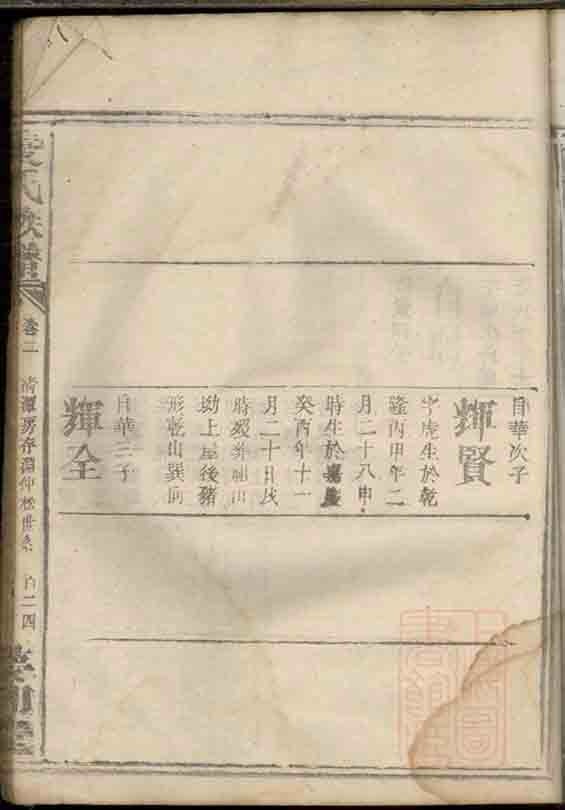 自華次子
輝賢
字虎生於乾
隆丙甲年二
月二十八申
時生於嘉慶
癸酉年十一
月二十日戌
時歿葬
坳上屋後豬
形乾山巽向
自華三子
輝全
氏族譜
卷二
清潭房存淵仲松世系
百二四